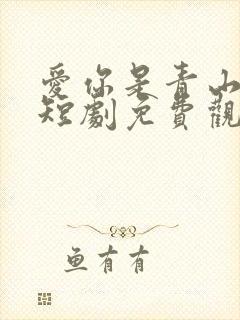 愛你是青山
短劇免費觀
魚有有